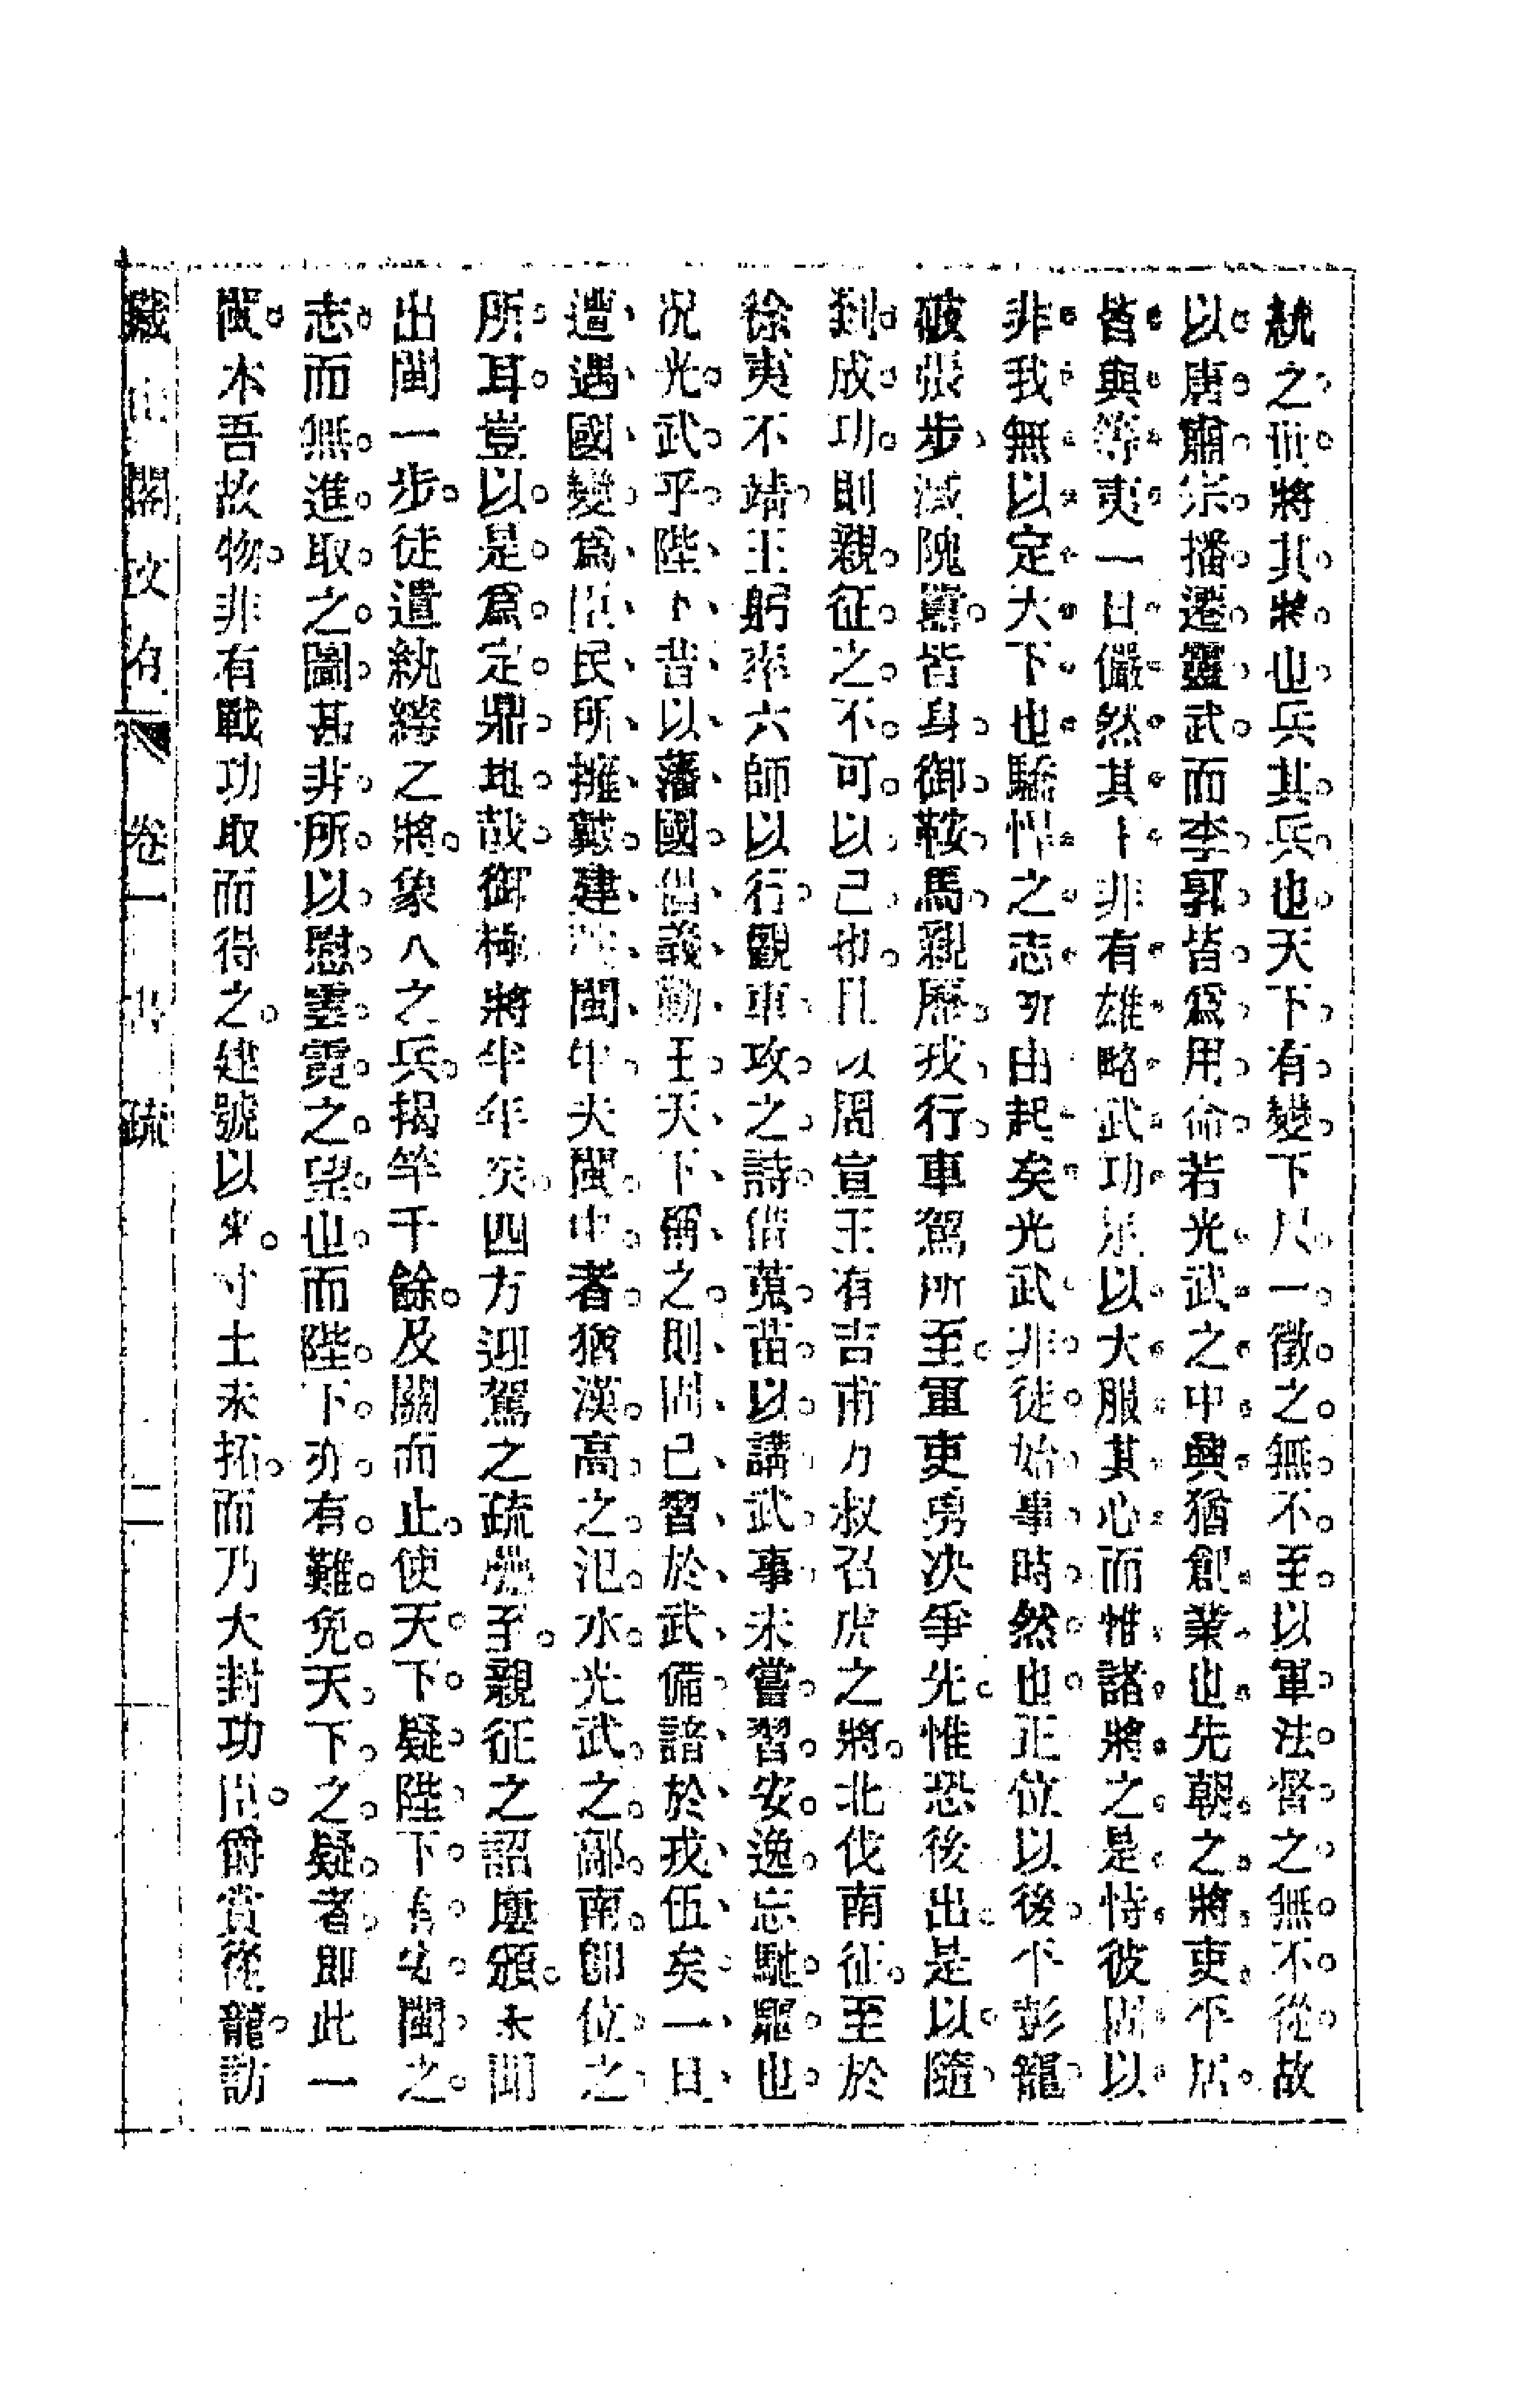 統之而將其將也兵其兵也天下有變下尺一徵之無不至以軍法督之無不從故
以唐肅宗播遷靈武而李郭皆爲用命若光武之中興猶創業也先朝之將吏不居
皆與等夷一日儼然其上非有雄略武功足以大服其心而惟諸將之是恃彼固以
非我無以定天下也驕悍之志所由起矣光武非徒始事時然也正位以後平彭寵
破張步滅隗囂皆身御鞍馬親歷戎行車駕所至軍吏勇决爭先惟恐後出是以隨
到成功則親征之不可以已也且以周宣王有吉甫方叔召虎之將北伐南征至於
徐夷不靖王躬率六師以行觀車攻之詩借蒐苗以講武事未嘗習安逸忘馳驅也
况光武乎陛下昔以藩國倡義勤王天下稱之則固已習於武備諳於戎伍矣一旦
遭遇國變爲臣民所擁戴建閩中夫閩中者猶漢高之汜水光武之鄗南卽位之
所耳豈以是爲定鼎地哉御極將半年矣四方迎駕之疏疊至親征之詔屢頒未聞
出閩一步徒遣紈綺之將象人之兵揭竿千餘及關而止使天下疑陛下有安閩之
志而無進取之圖甚非所以慰雲霓之望也而陛下亦有難免天下之疑者即此一
閩本吾故物非有戰功取而得之建號以來寸土未拓而乃大封功臣爵賞從龍訪
藏山閣文存 卷一 書疏 二